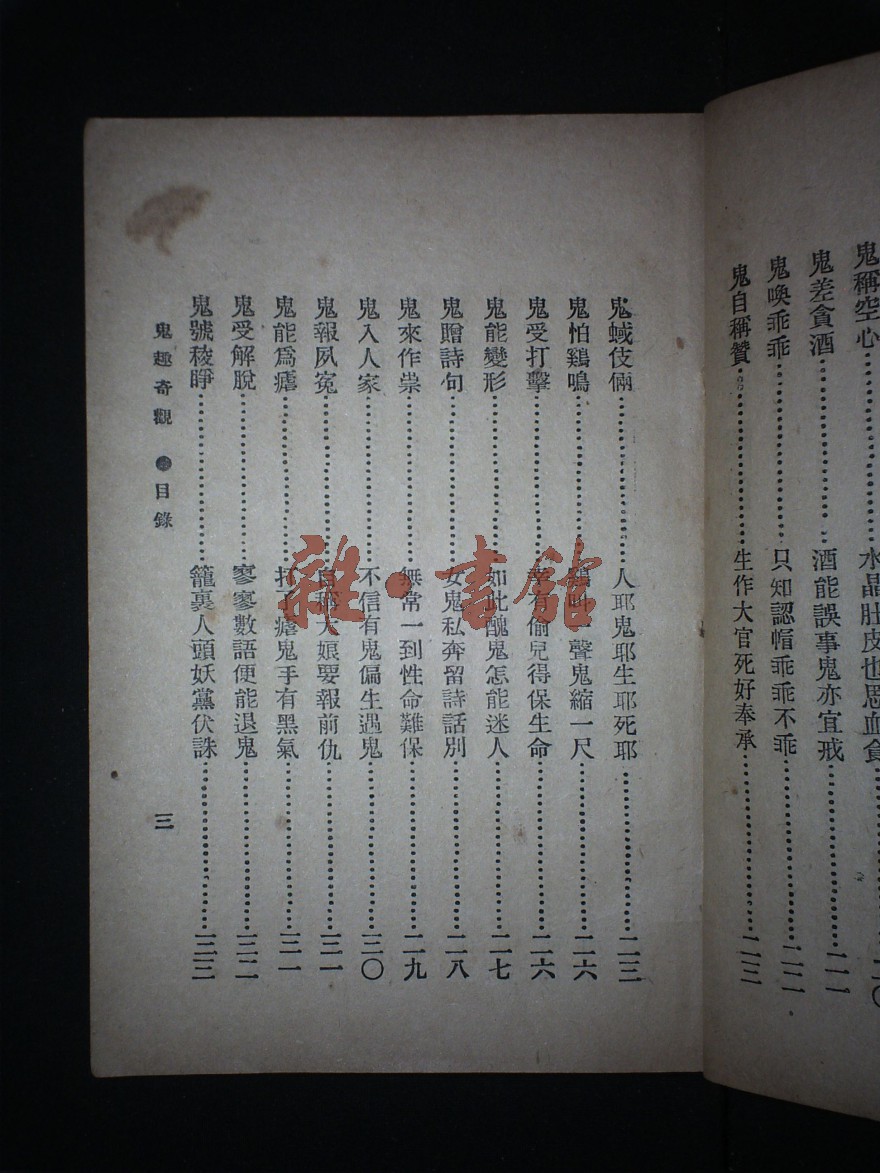 鬼稱空心……水晶肚皮也思血食……二〇
鬼差貪酒……酒能誤事鬼亦宜戒……二一
鬼喚乖乖……只知認帽乖乖不乖……二二
鬼自稱贊……生作大官死好奉承……二三
鬼蜮伎倆……人耶鬼耶生耶死耶……二三
鬼怕鷄鳴……鷄叫一聲鬼縮一尺……二六
鬼受打擊……幸有偷兒得保生命……二六
鬼能變形……如此醜鬼怎能迷人……二七
鬼贈詩句……女鬼私奔留詩話別……二八
鬼來作祟……無常一到性命難保……二九
鬼入人家……不信有鬼偏生遇鬼……三〇
鬼報夙冤……自稱大娘要報前仇……三一
鬼能爲瘧……打了瘧鬼手有黑氣……三一
鬼受解脫……寥寥數語便能退鬼……三二
鬼號稜睜……籠裏人頭妖黨伏誅……三三
鬼趣奇觀 目錄
三
雜·書館